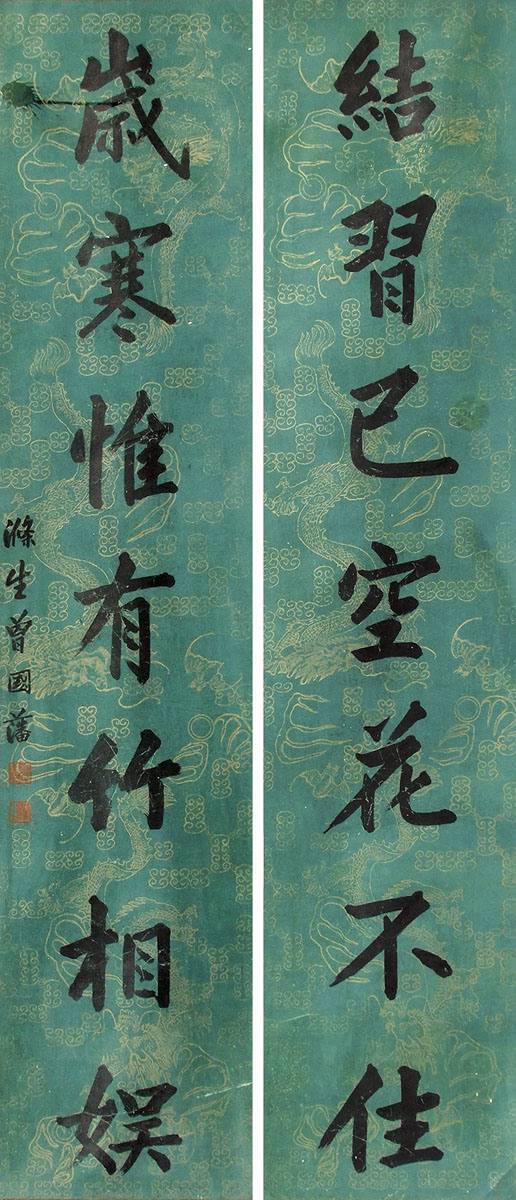 結習已空花不住
嵗寒惟有竹相娛
滌生曾國藩